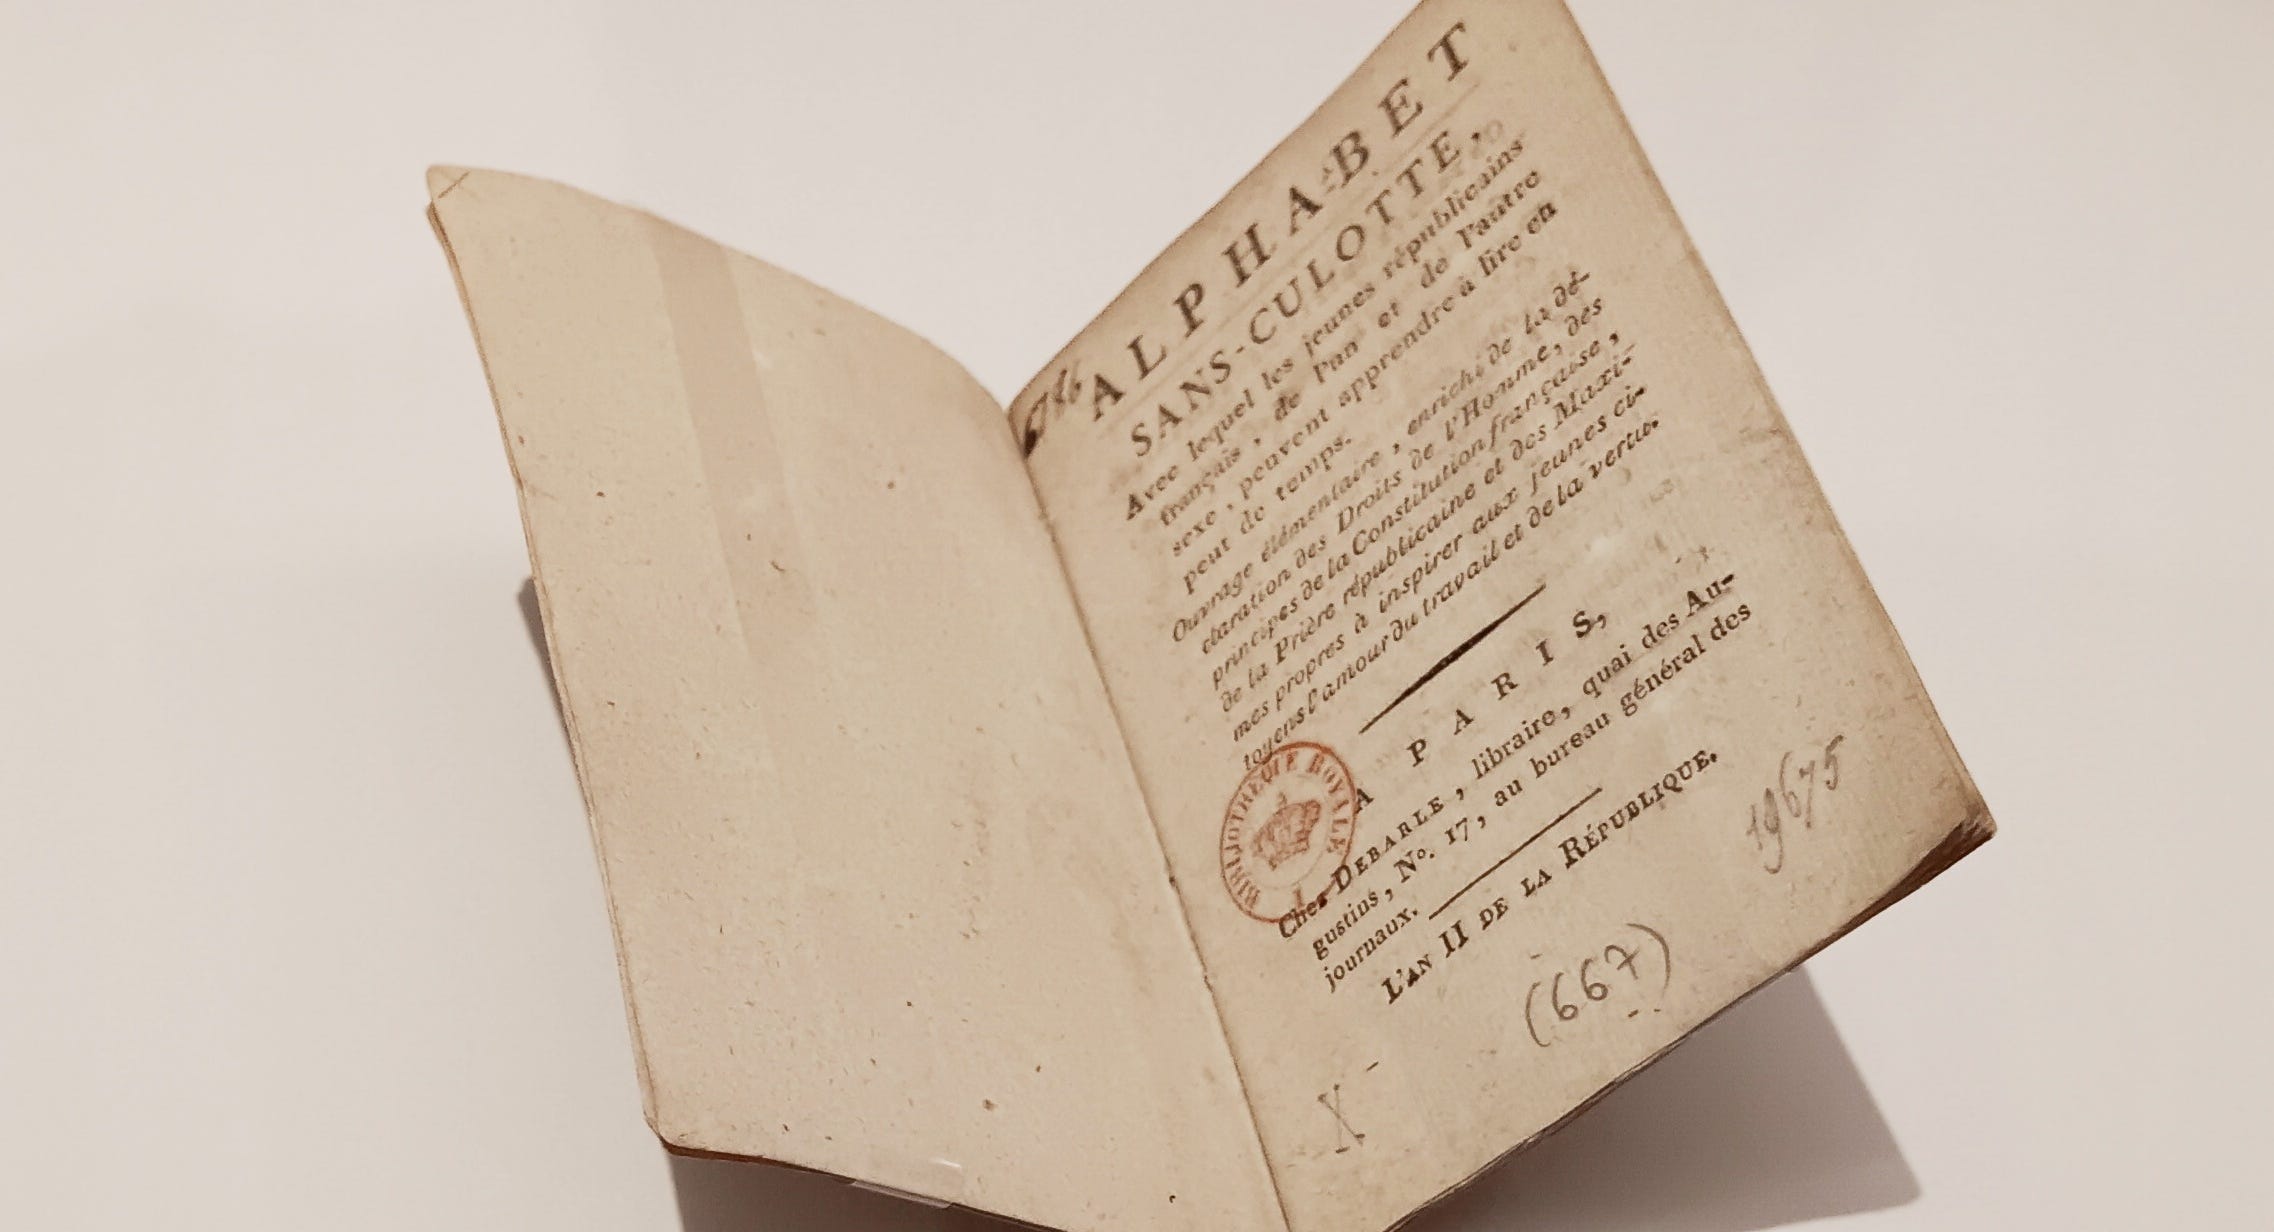 ALPHABET
SANS-CULOTTE,
Avec lequel les jeunes républicains
français, de l'un et de l'autre
sexe, peuvent apprendre à lire en
peut de temps.
Ouvrage élémentaire, enrichi de la dé-
claration des Droits de l'Homme, des
principes de la Constitution française,
de la Prière républicaine et des Maxi-
mes propres à inspirer aux jeunes ci-
toyens l'amour du travail et de la vertu.
A PARIS,
BIBLIOTHEQUE ROYALE
Chez DEBARLE, libraire, quai des Au-
gustins, No. 17, au bureau général des
journaux.
L'AN II DE LA RÉPUBLIQUE.
19675
(667)
X